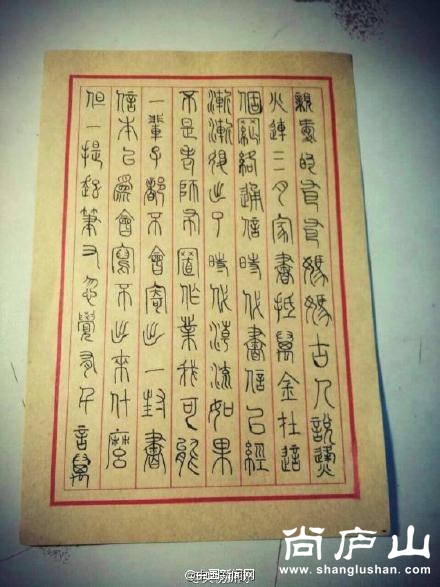 親愛的爸爸媽媽古人說烽
火連三月家書抵萬金在這
個網絡通信時代書信已經
漸漸退出了時代潮流如果
不是老師布置作業我可能
一輩子都不會寄出一封書
信本已為會寫不出來什麼
但一提起筆又忽覺有千言萬
@中国新闻网
尚庐山
www.shanglushan.com